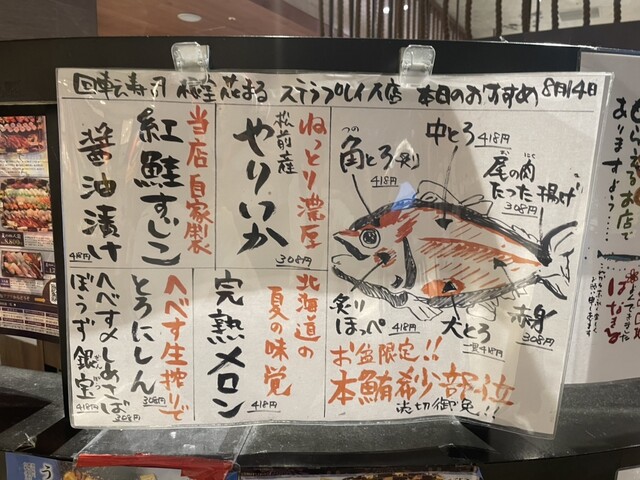 回転寿司 根室花まる ステラプレイス店 本日のおすすめ 8月14日
当店自家製
紅鮭すじこ
醤油漬け
418円
ねっとり濃厚
松前産
やりいか
308円
へべす生搾りで
とろにしん
308円
へべす〆しめさば
308円
ぼうず銀宝
418円
北海道の
夏の味覚
完熟メロン
418円
中とろ 418円
角とろ
つの
418円
尾の肉
たつた揚げ
308円
炙り
ほっぺ 418円
大とろ
一貫418円
赤身
308円
お盆限定!!
本鮪希少部位
売切御免!!
ありますよう…